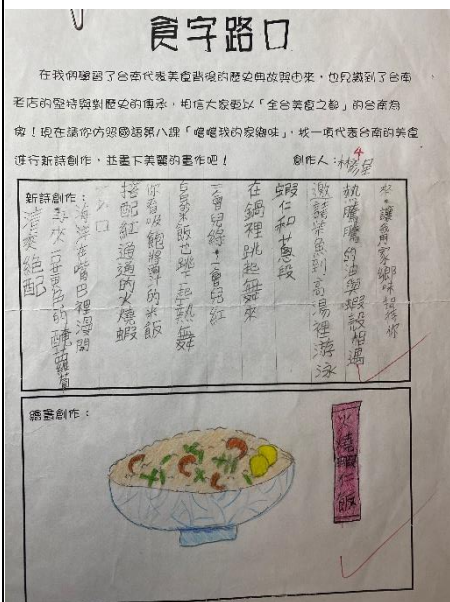 食字路口
在我們學習了台南代表美食背後的歷史典故與由來，也見識到了台南
老店的堅持與對歷史的傳承，相信大家更以「全台美食之都」的台南為
傲！現在請你仿照國語第八課「嚐嚐我的家鄉味」，找一項代表台南的美食
進行新詩創作，並畫下美麗的畫作吧！ 創作人：
4
新詩創作：
來，讓家鄉味招待你
熱騰騰的油與蝦殼相遇
邀請柴魚到高湯裡游泳
蝦仁和蔥段
在鍋裡跳起舞來
一會兒綠，一會兒紅
飯也跳起熱舞
吸飽汁的米飯
搭配紅通通的火燒蝦
一口
海洋在嘴巴裡漫開
再來一口黃色的醃蘿蔔
清爽絕配
繪畫創作：
火燒蝦仁飯